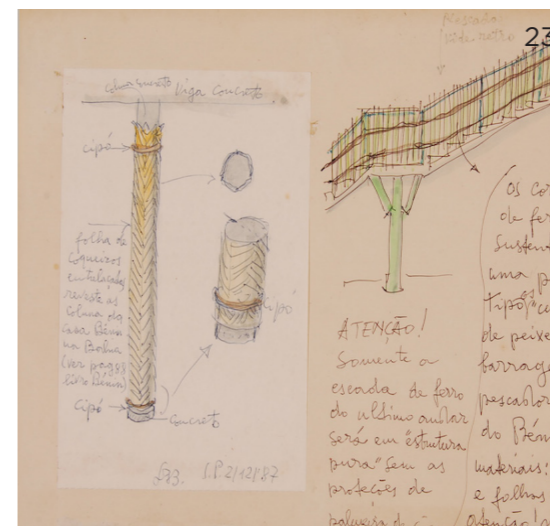 23
Viga Concreto
cipó
folha de
coqueiros
entrelaçados
reveste as
colunas da
casa Benin
na Bahia
(ver pag 88
livro Benin)
cipó
Cipó
Concreto
S.P. 2/12/87
ATENÇÃO!
Somente a
escada de ferro
do ultimo andar
será em "estrutura
pura" sem as
proteções de
palmeira
Os co
de fer
Susten
uma p
Tipo
de peixe
barrage
pescador
do Bén
materiais:
e folhas
atenção!